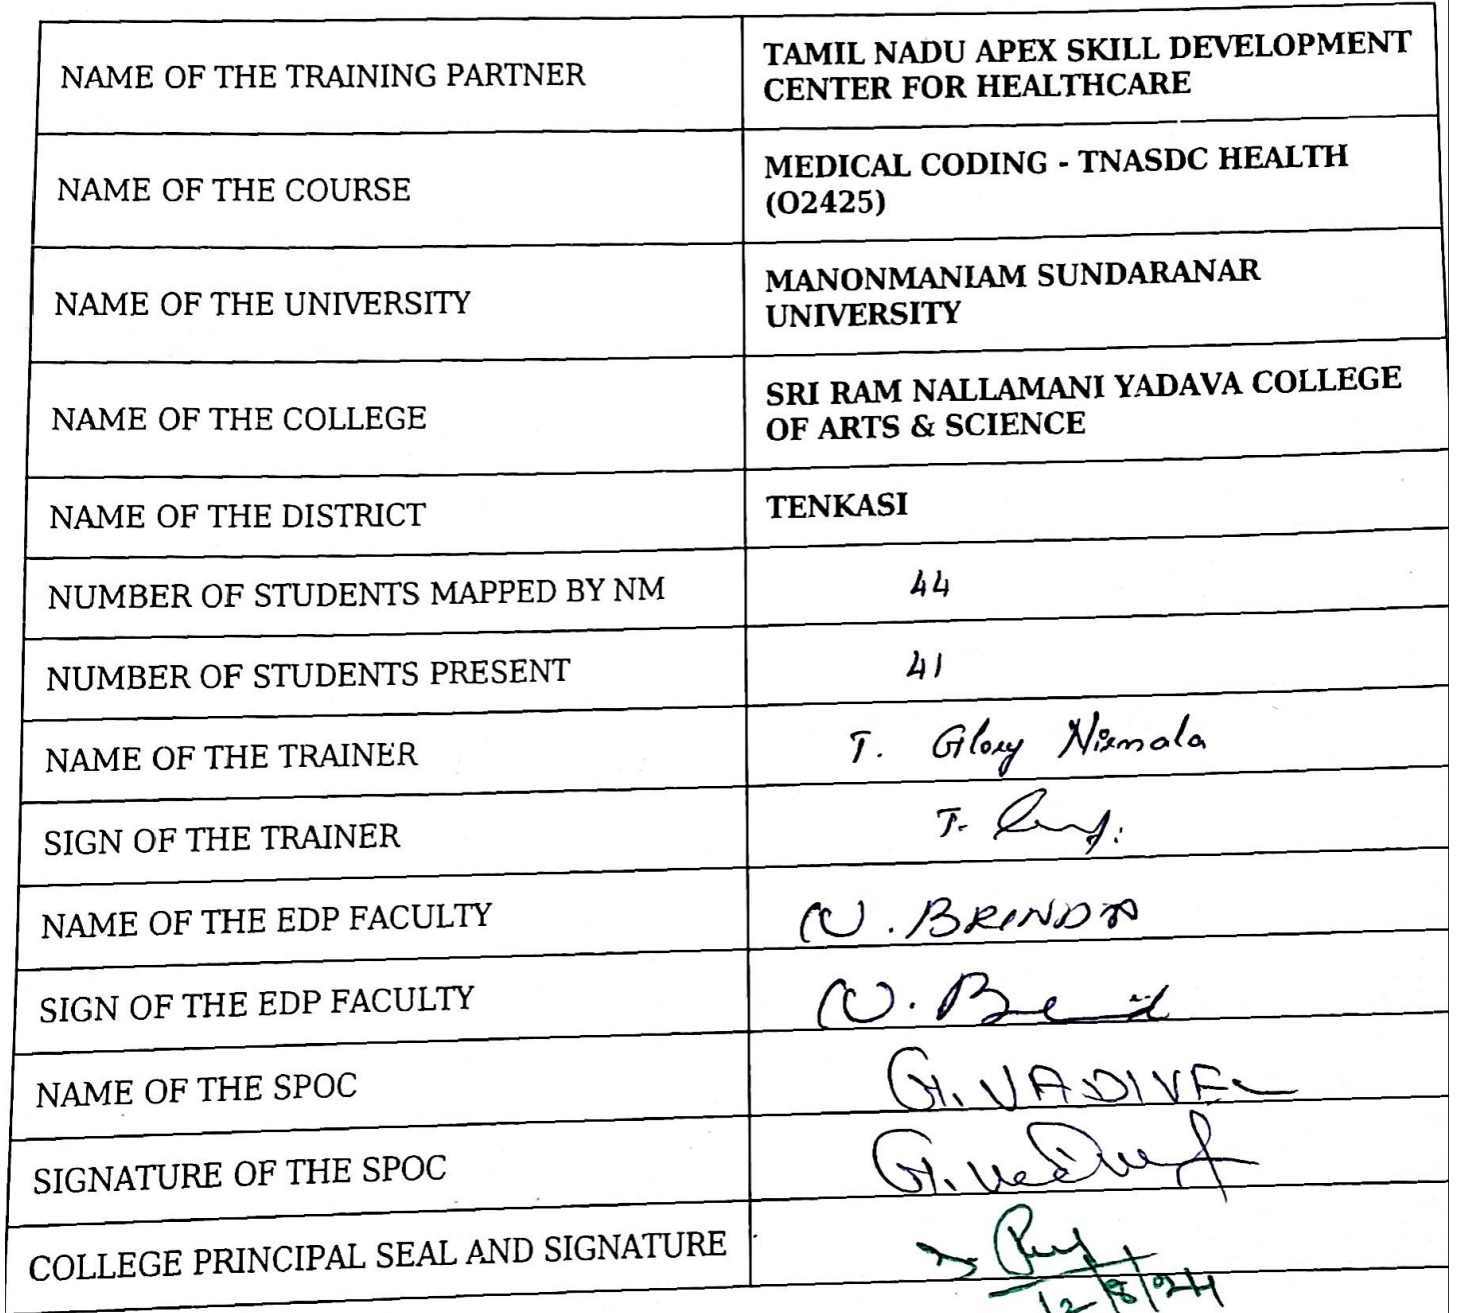 NAME OF THE TRAINING PARTNER
TAMIL NADU APEX SKILL DEVELOPMENT
CENTER FOR HEALTHCARE
NAME OF THE COURSE
MEDICAL CODING - TNASDC HEALTH
(O2425)
NAME OF THE UNIVERSITY
MANONMANIAM SUNDARANAR
UNIVERSITY
NAME OF THE COLLEGE
SRI RAM NALLAMANI YADAVA COLLEGE
OF ARTS & SCIENCE
NAME OF THE DISTRICT
TENKASI
NUMBER OF STUDENTS MAPPED BY NM
44
NUMBER OF STUDENTS PRESENT
41
NAME OF THE TRAINER
T. Glory Nirmala
SIGN OF THE TRAINER
T.
NAME OF THE EDP FACULTY
N. BRINDA
SIGN OF THE EDP FACULTY
N.
NAME OF THE SPOC
G. VADIVEL
SIGNATURE OF THE SPOC
G.
COLLEGE PRINCIPAL SEAL AND SIGNATURE
12/8/24